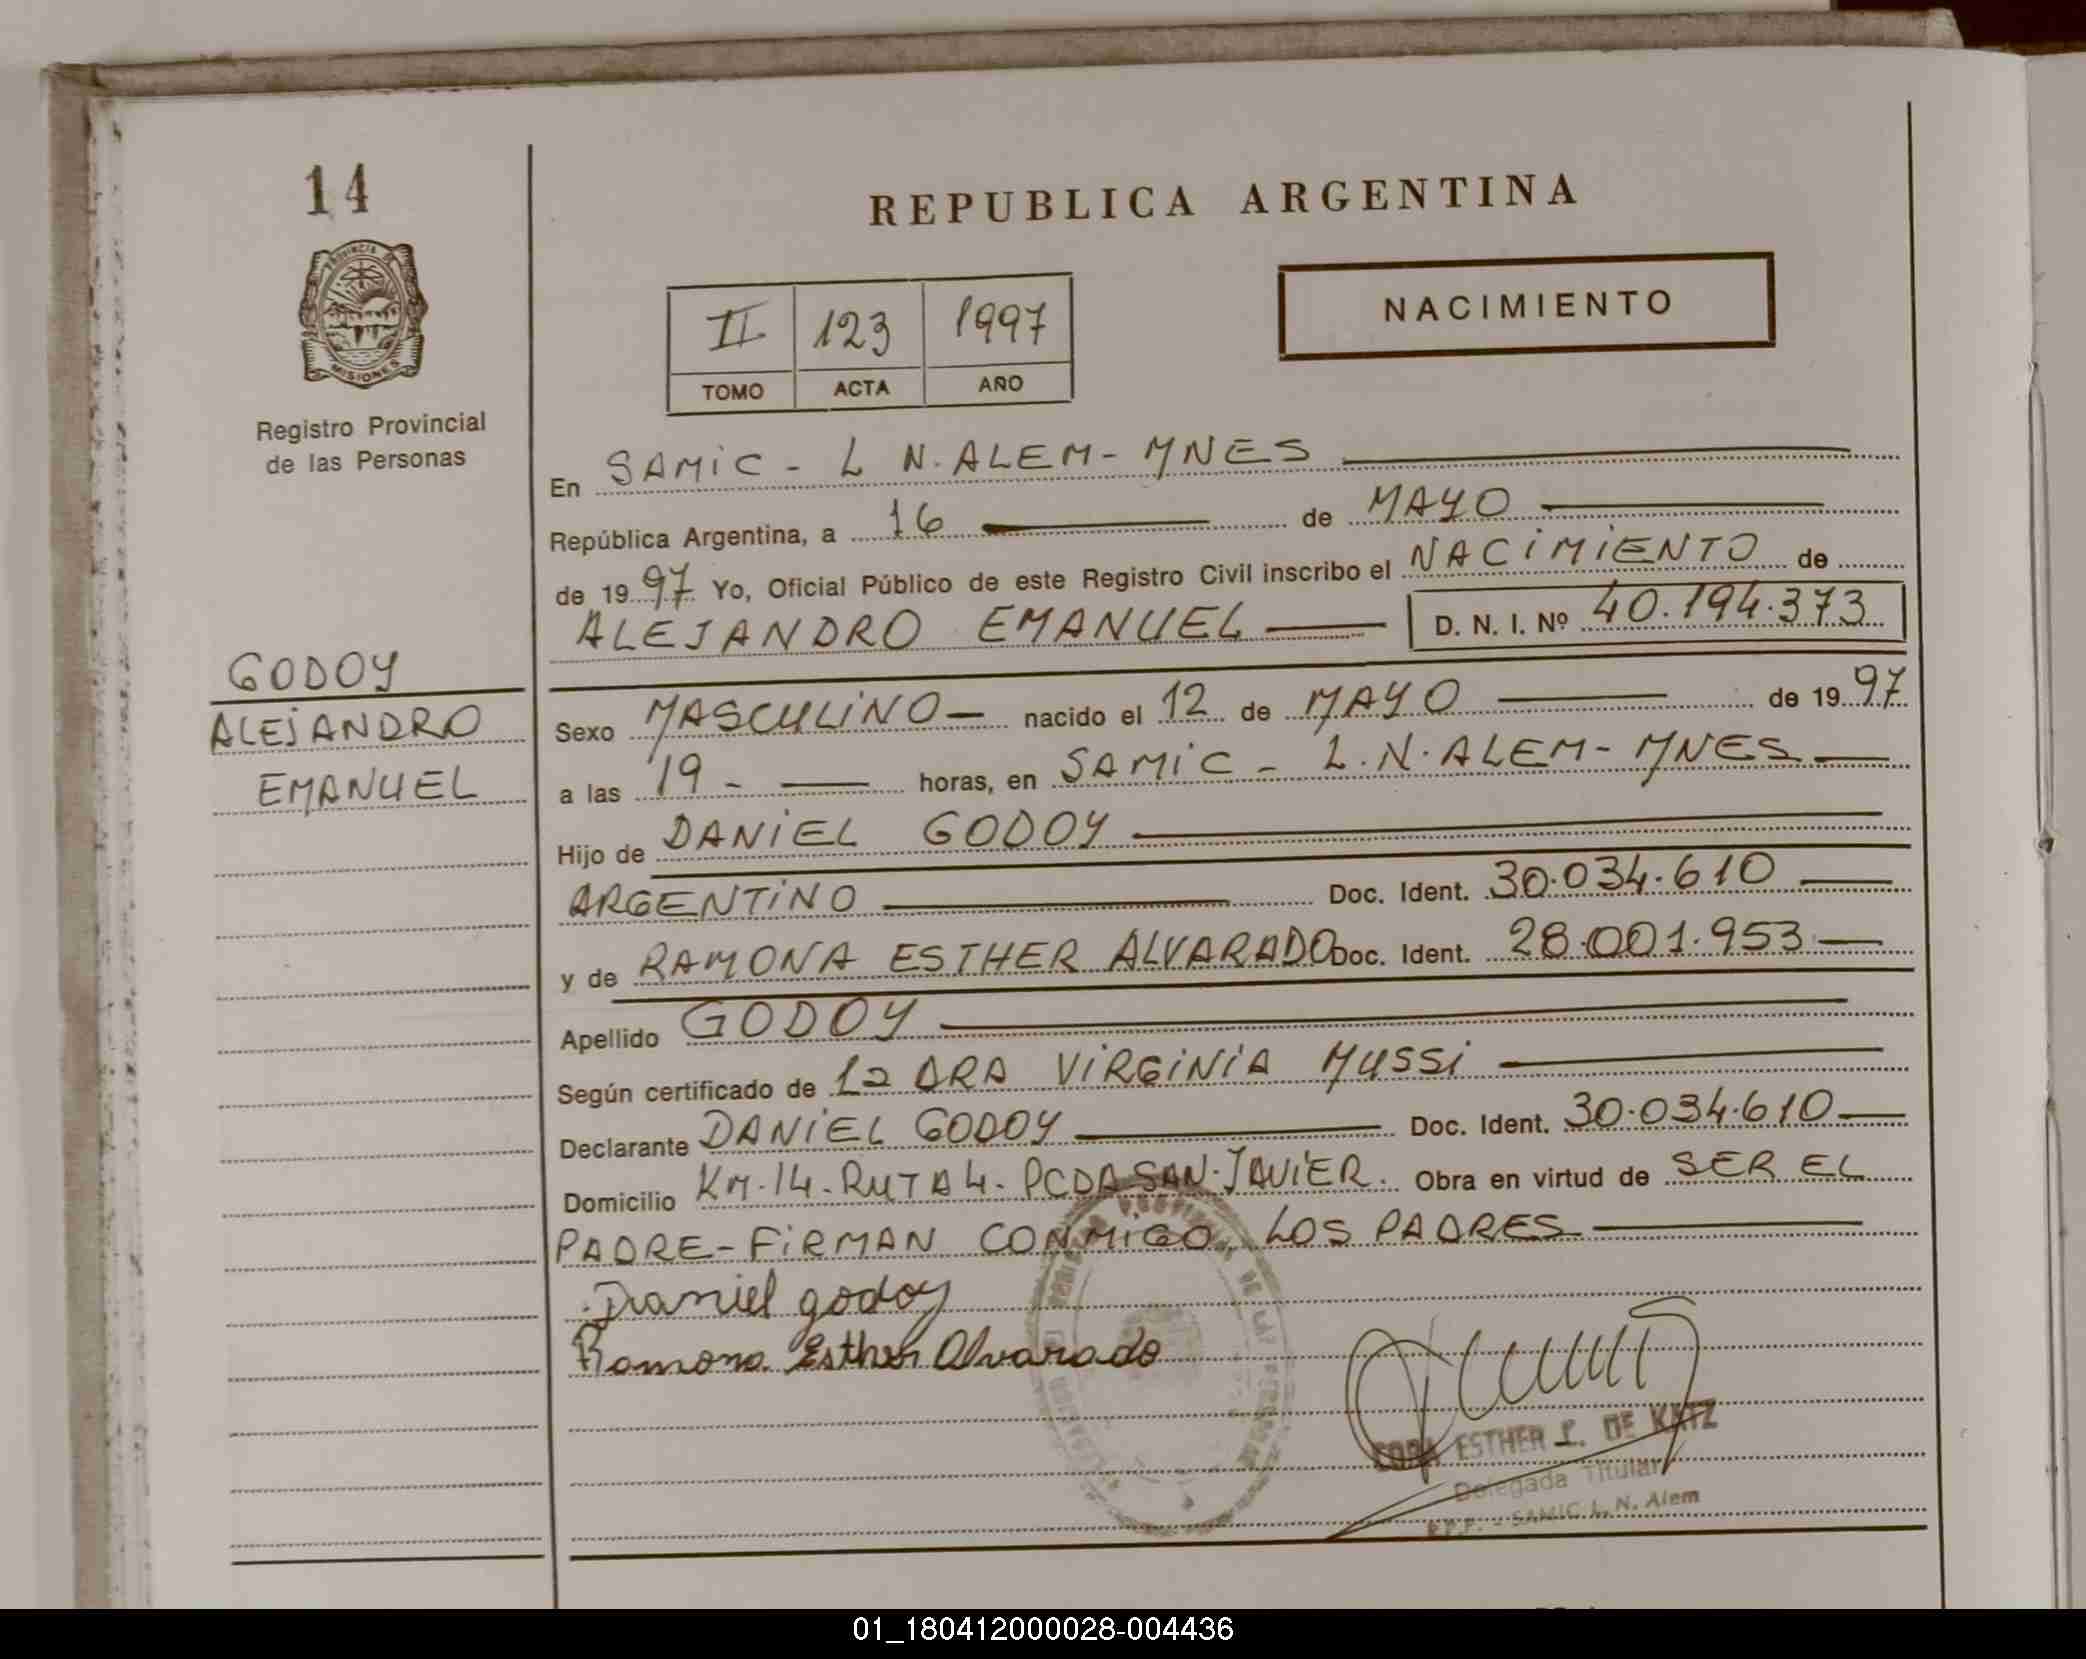 14
PROVINCIA DE
MISIONES
Registro Provincial
de las Personas
GODOY
ALEJANDRO
EMANUEL
REPUBLICA ARGENTINA
NACIMIENTO
II 123 1997
TOMO ACTA AÑO
En SAMIC - L N. ALEM - MNES
República Argentina, a 16 de MAYO
de 1997 Yo, Oficial Público de este Registro Civil inscribo el NACIMIENTO de
ALEJANDRO EMANUEL D. N. I. Nº 40.194.373
Sexo MASCULINO nacido el 12 de MAYO de 1997
a las 19 - horas, en SAMIC - L. N. ALEM - MNES
Hijo de DANIEL GODOY
ARGENTINO Doc. Ident. 30.034.610
y de RAMONA ESTHER ALVARADO Doc. Ident. 28.001.953
Apellido GODOY
Según certificado de la DRA VIRGINIA MUSSI
Declarante DANIEL GODOY Doc. Ident. 30.034.610
Domicilio KM.14-RUTA 4-PCDA SAN JAVIER. Obra en virtud de SER EL
PADRE-FIRMAN CONMIGO, LOS PADRES
Daniel godoy
Ramona Esther Alvarado
ESTHER L. DE KATZ
Delegada Titular
R.P.P. - SAMIC L. N. Alem
01_180412000028-004436